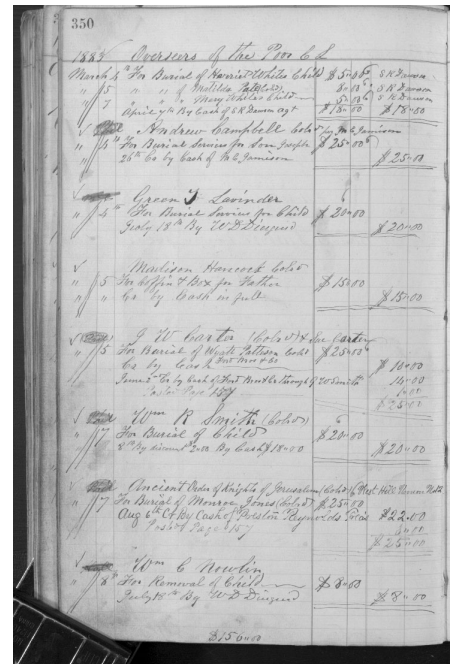 350
1883 Overseers of the Poor C S
March 4th For Burial of Harriet Whites Child $5.00 S K Dawson
" 5 " " of Matilda 8.00 S K Dawson
" 7 " " " Mary Whites Child 5.00 S K Dawson
April 7th By Cash of S K Dawson agt $18.00 $18.00
Andrew Campbell Cold for W C Jamison
" 4th For Burial Services for Son Joseph $25.00
26th Cr by Cash of W C Jamison $25.00
Green J Lavinder
" 4th For Burial Services for Child $20.00
July 18th By W D $20.00
Madison Hancock Cold
" 5 For Coffin & Box for Father $15.00
" " Cr by Cash in full $15.00
J W Carter (Cold) & Sue Carter
" 5 For Burial of Wyatt Patterson Cold $25.00
Cr by Cash $10.00
June 2nd Cr by Cash of through 14.00
Page 157 1.00
$25.00
Wm R Smith (Cold)
" 7 For Burial of Child $20.00
8th By discount 2.00 By Cash $18.00 $20.00
Ancient Order of Knights of Jerusalem (Cold)
" 7 For Burial of Monroe Jones (Cold) $25.00
Aug 6th Cr By Cash of Preston Reynolds $22.00
Page 157 3.00
$25.00
Wm C Nowlin
" 8th For Removal of Child $8.00
July 18th By W D $8.00
$156.00